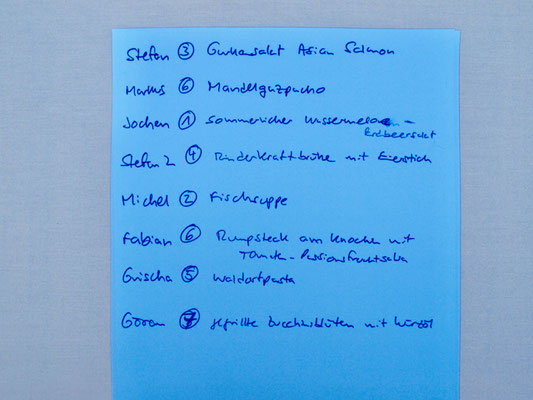 Stefan ③ Gurkensalat Asian Salmon
Markus ⑥ Mandelgazpacho
Jochen ① Sommerlicher Wassermelonen-
Erdbeersalat
Stefan 2 ④ Rinderkraftbrühe mit Eierstich
Michel ② Fischsuppe
Fabian ⑥ Rumpsteak am Knochen mit
Tomate-Passionsfruchtsalsa
Grischa ⑤ Waldorfpasta
Goran gefüllte Zucchiniblüten mit